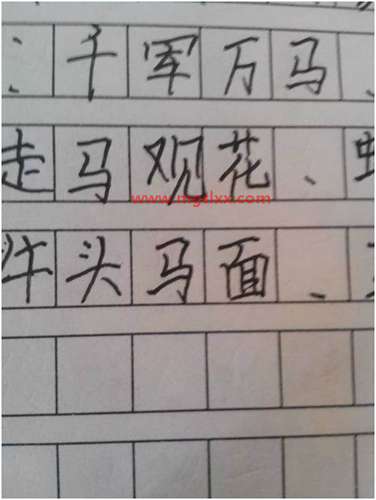 ：千军万马、
走马观花、
牛头马面、
www.mgtlxx.com